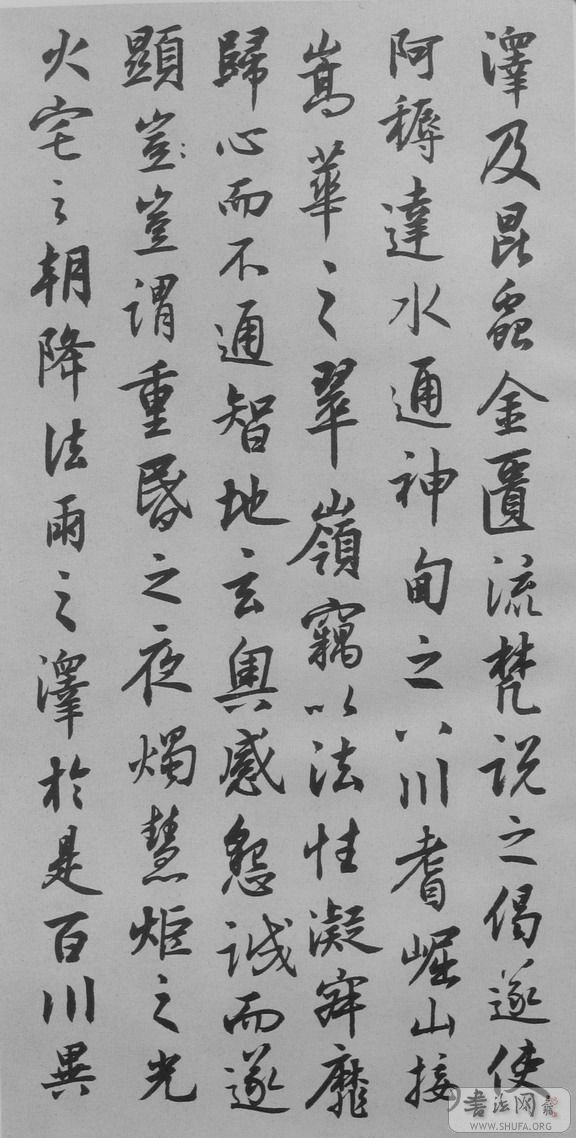 澤及昆蟲金匱流梵說之偈遂使
阿耨達水通神甸之八川耆崛山接
嵩華之翠嶺竊以法性凝寂靡
歸心而不通智地玄奧感懇誠而遂
顯豈豈謂重昏之夜燭慧炬之光
火宅之朝降法雨之澤於是百川異
書法网
WWW.SHUFA.ORG